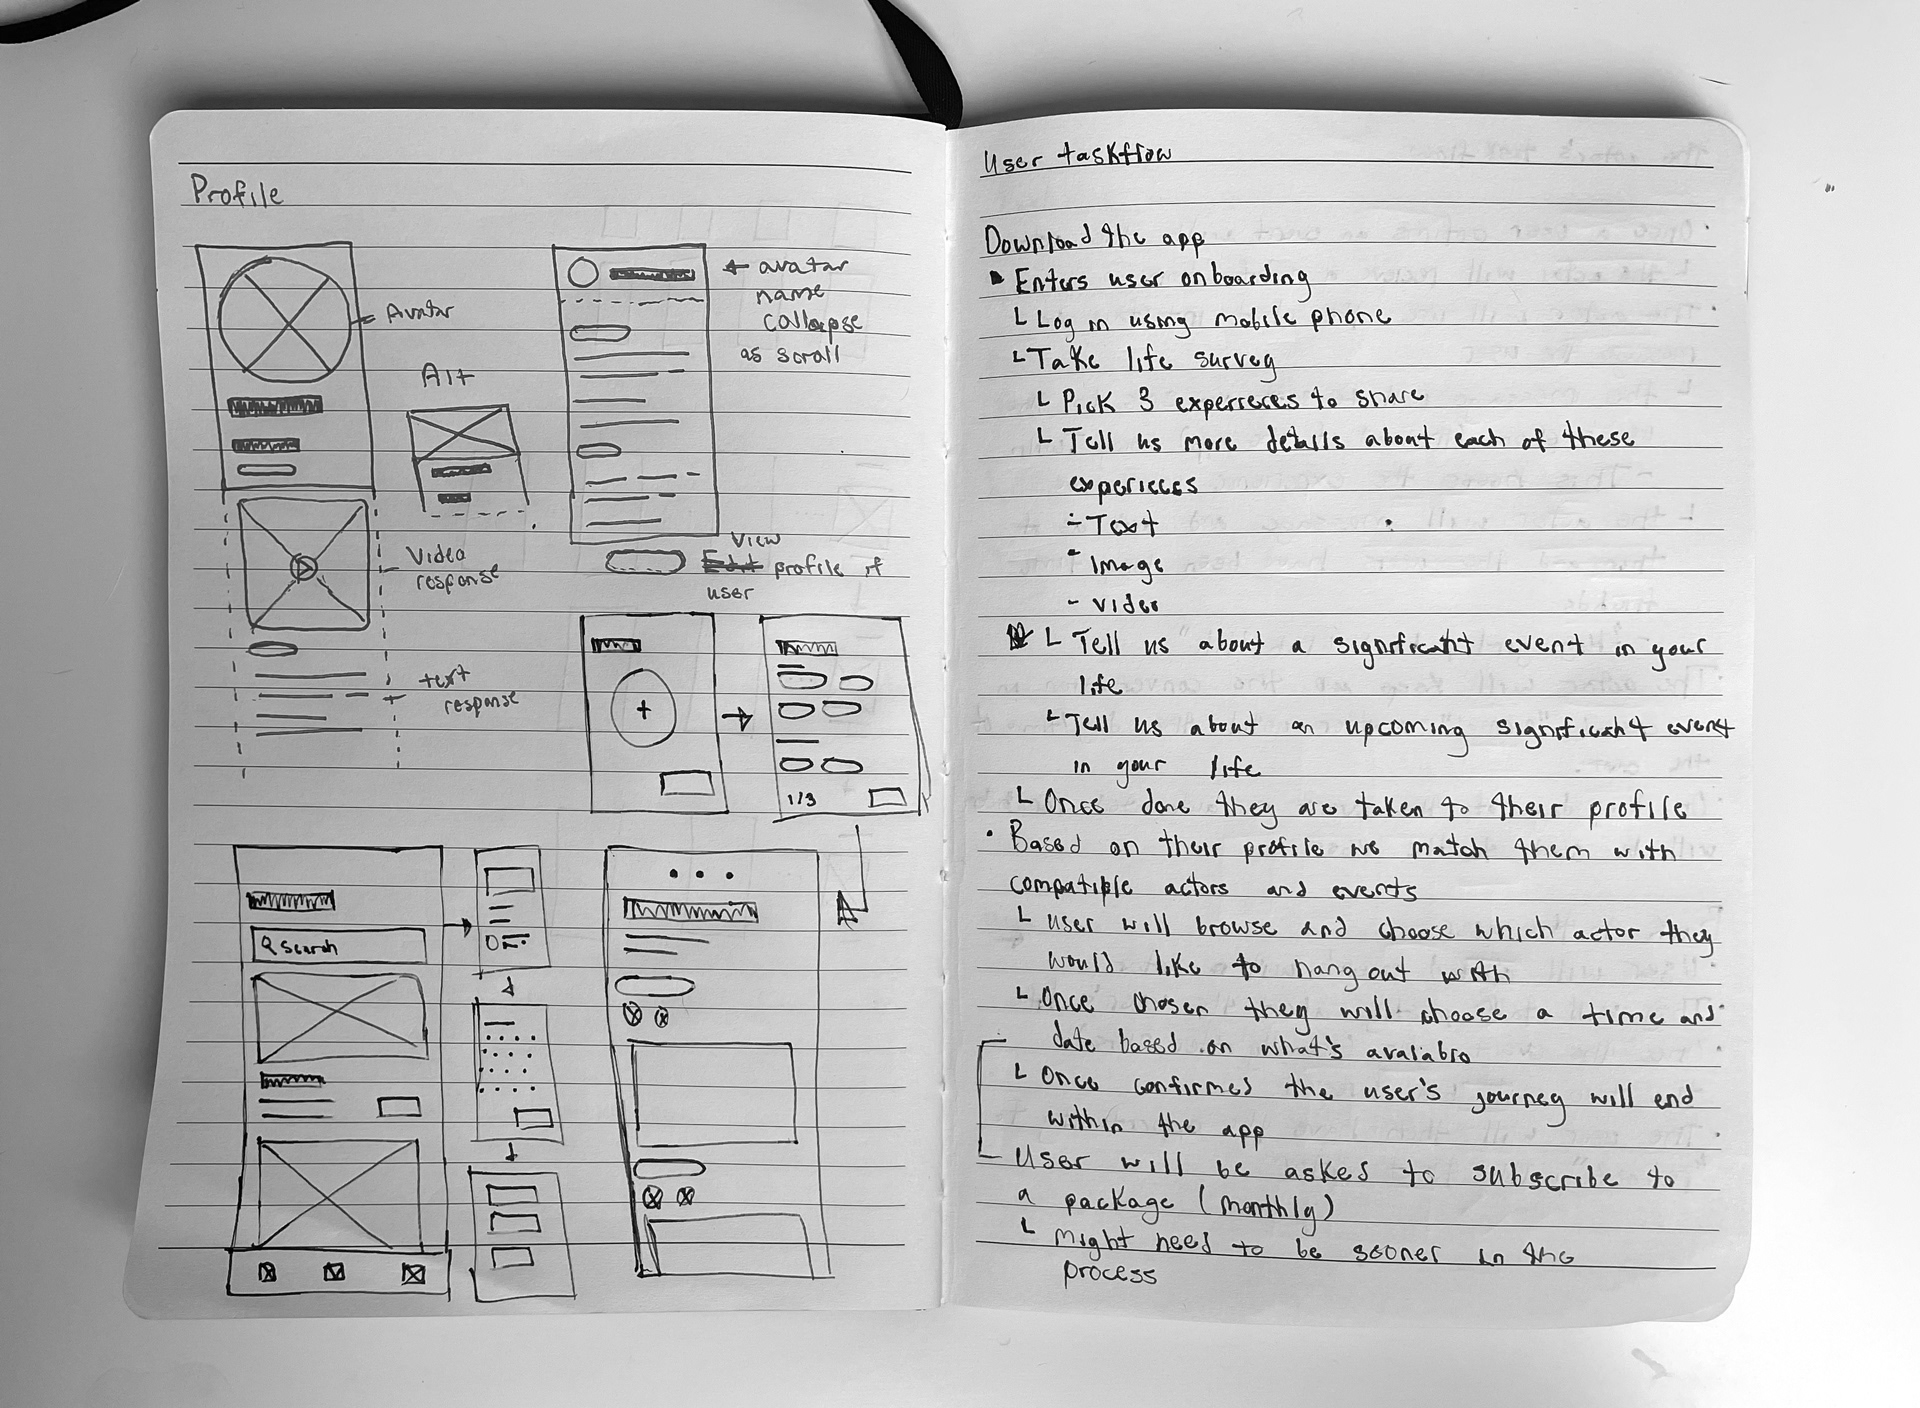 Profile
Avatar
Alt
← avatar
name
collapse
as scroll
Video
response
View
Edit profile if
user
text
response
+
1/3
Search
User taskflow
Download the app
Enters user onboarding
Log in using mobile phone
Take life survey
Pick 3 to share
Tell us more details about each of these

- Text
Image
- Video
Tell us about a significant event in your
life
Tell us about an upcoming significant event
in your life
Once done they are taken to their profile
• Based on their profile we match them with
compatible actors and events
User will browse and choose which actor they
would like to hang out with
Once chosen they will choose a time and
date based on what's
Once confirmed the user's journey will end
within the app
User will be asked to subscribe to
a package (monthly)
might need to be sooner in the
process